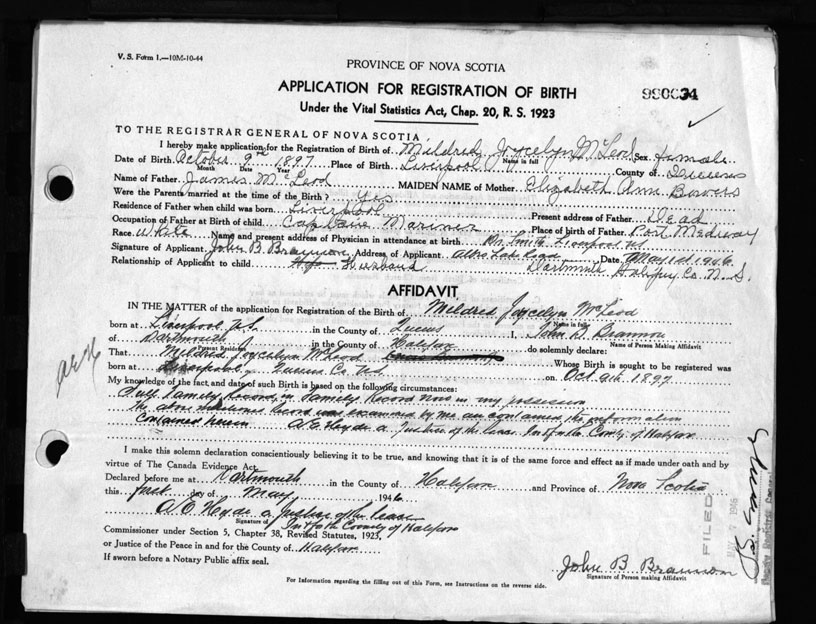 V. S. Form 1.—10M-10-44
PROVINCE OF NOVA SCOTIA
APPLICATION FOR REGISTRATION OF BIRTH
990034
Under the Vital Statistics Act, Chap. 20, R. S. 1923
TO THE REGISTRAR GENERAL OF NOVA SCOTIA
I hereby make application for the Registration of Birth of Mildred Joycelyn McLeod Sex Female
Name in full
Date of Birth October 9th 1897 Place of Birth Liverpool County of Queens
Month Date Year
Name of Father James McLeod MAIDEN NAME of Mother Elizabeth Ann Bowers
Were the Parents married at the time of the Birth? Yes
Residence of Father when child was born Liverpool Present address of Father Dead
Occupation of Father at Birth of child Captain Mariner Place of birth of Father Port Medway
Race White Name and present address of Physician in attendance at birth Dr. Smith Liverpool NS
Signature of Applicant John B Brannon Address of Applicant Albro Lake Road Date May 1st 1946
Relationship of Applicant to child Husband Dartmouth Halifax Co. N. S.
AFFIDAVIT
IN THE MATTER of the application for Registration of the Birth of Mildred Joycelyn McLeod
Name in full
born at Liverpool N.S. in the County of Queens I, John B. Brannon
Name of Person Making Affidavit
of Dartmouth in the County of Halifax do solemnly declare:
Present Residence
That Mildred Joycelyn McLeod Whose Birth is sought to be registered was
born at Liverpool, Queens Co NS on Oct 9th 1897
My knowledge of the fact, and date of such Birth is based on the following circumstances:
Family Record in Family Record now in my possession
The above mentioned Record was examined by me and contained the information
contained herein A E Heyde a Justice of the Peace In & for the County of Halifax
I make this solemn declaration conscientiously believing it to be true, and knowing that it is of the same force and effect as if made under oath and by
virtue of The Canada Evidence Act.
Declared before me at Dartmouth in the County of Halifax and Province of Nova Scotia
this first day of May 1946
A E Heyde a Justice of the Peace
Signature of In & for the County of Halifax
Commissioner under Section 5, Chapter 38, Revised Statutes, 1923,
or Justice of the Peace in and for the County of Halifax
If sworn before a Notary Public affix seal.
John B Brannon
Signature of Person making Affidavit
For Information regarding the filling out of this Form, see Instructions on the reverse side.
FILED
MAY 7 1946